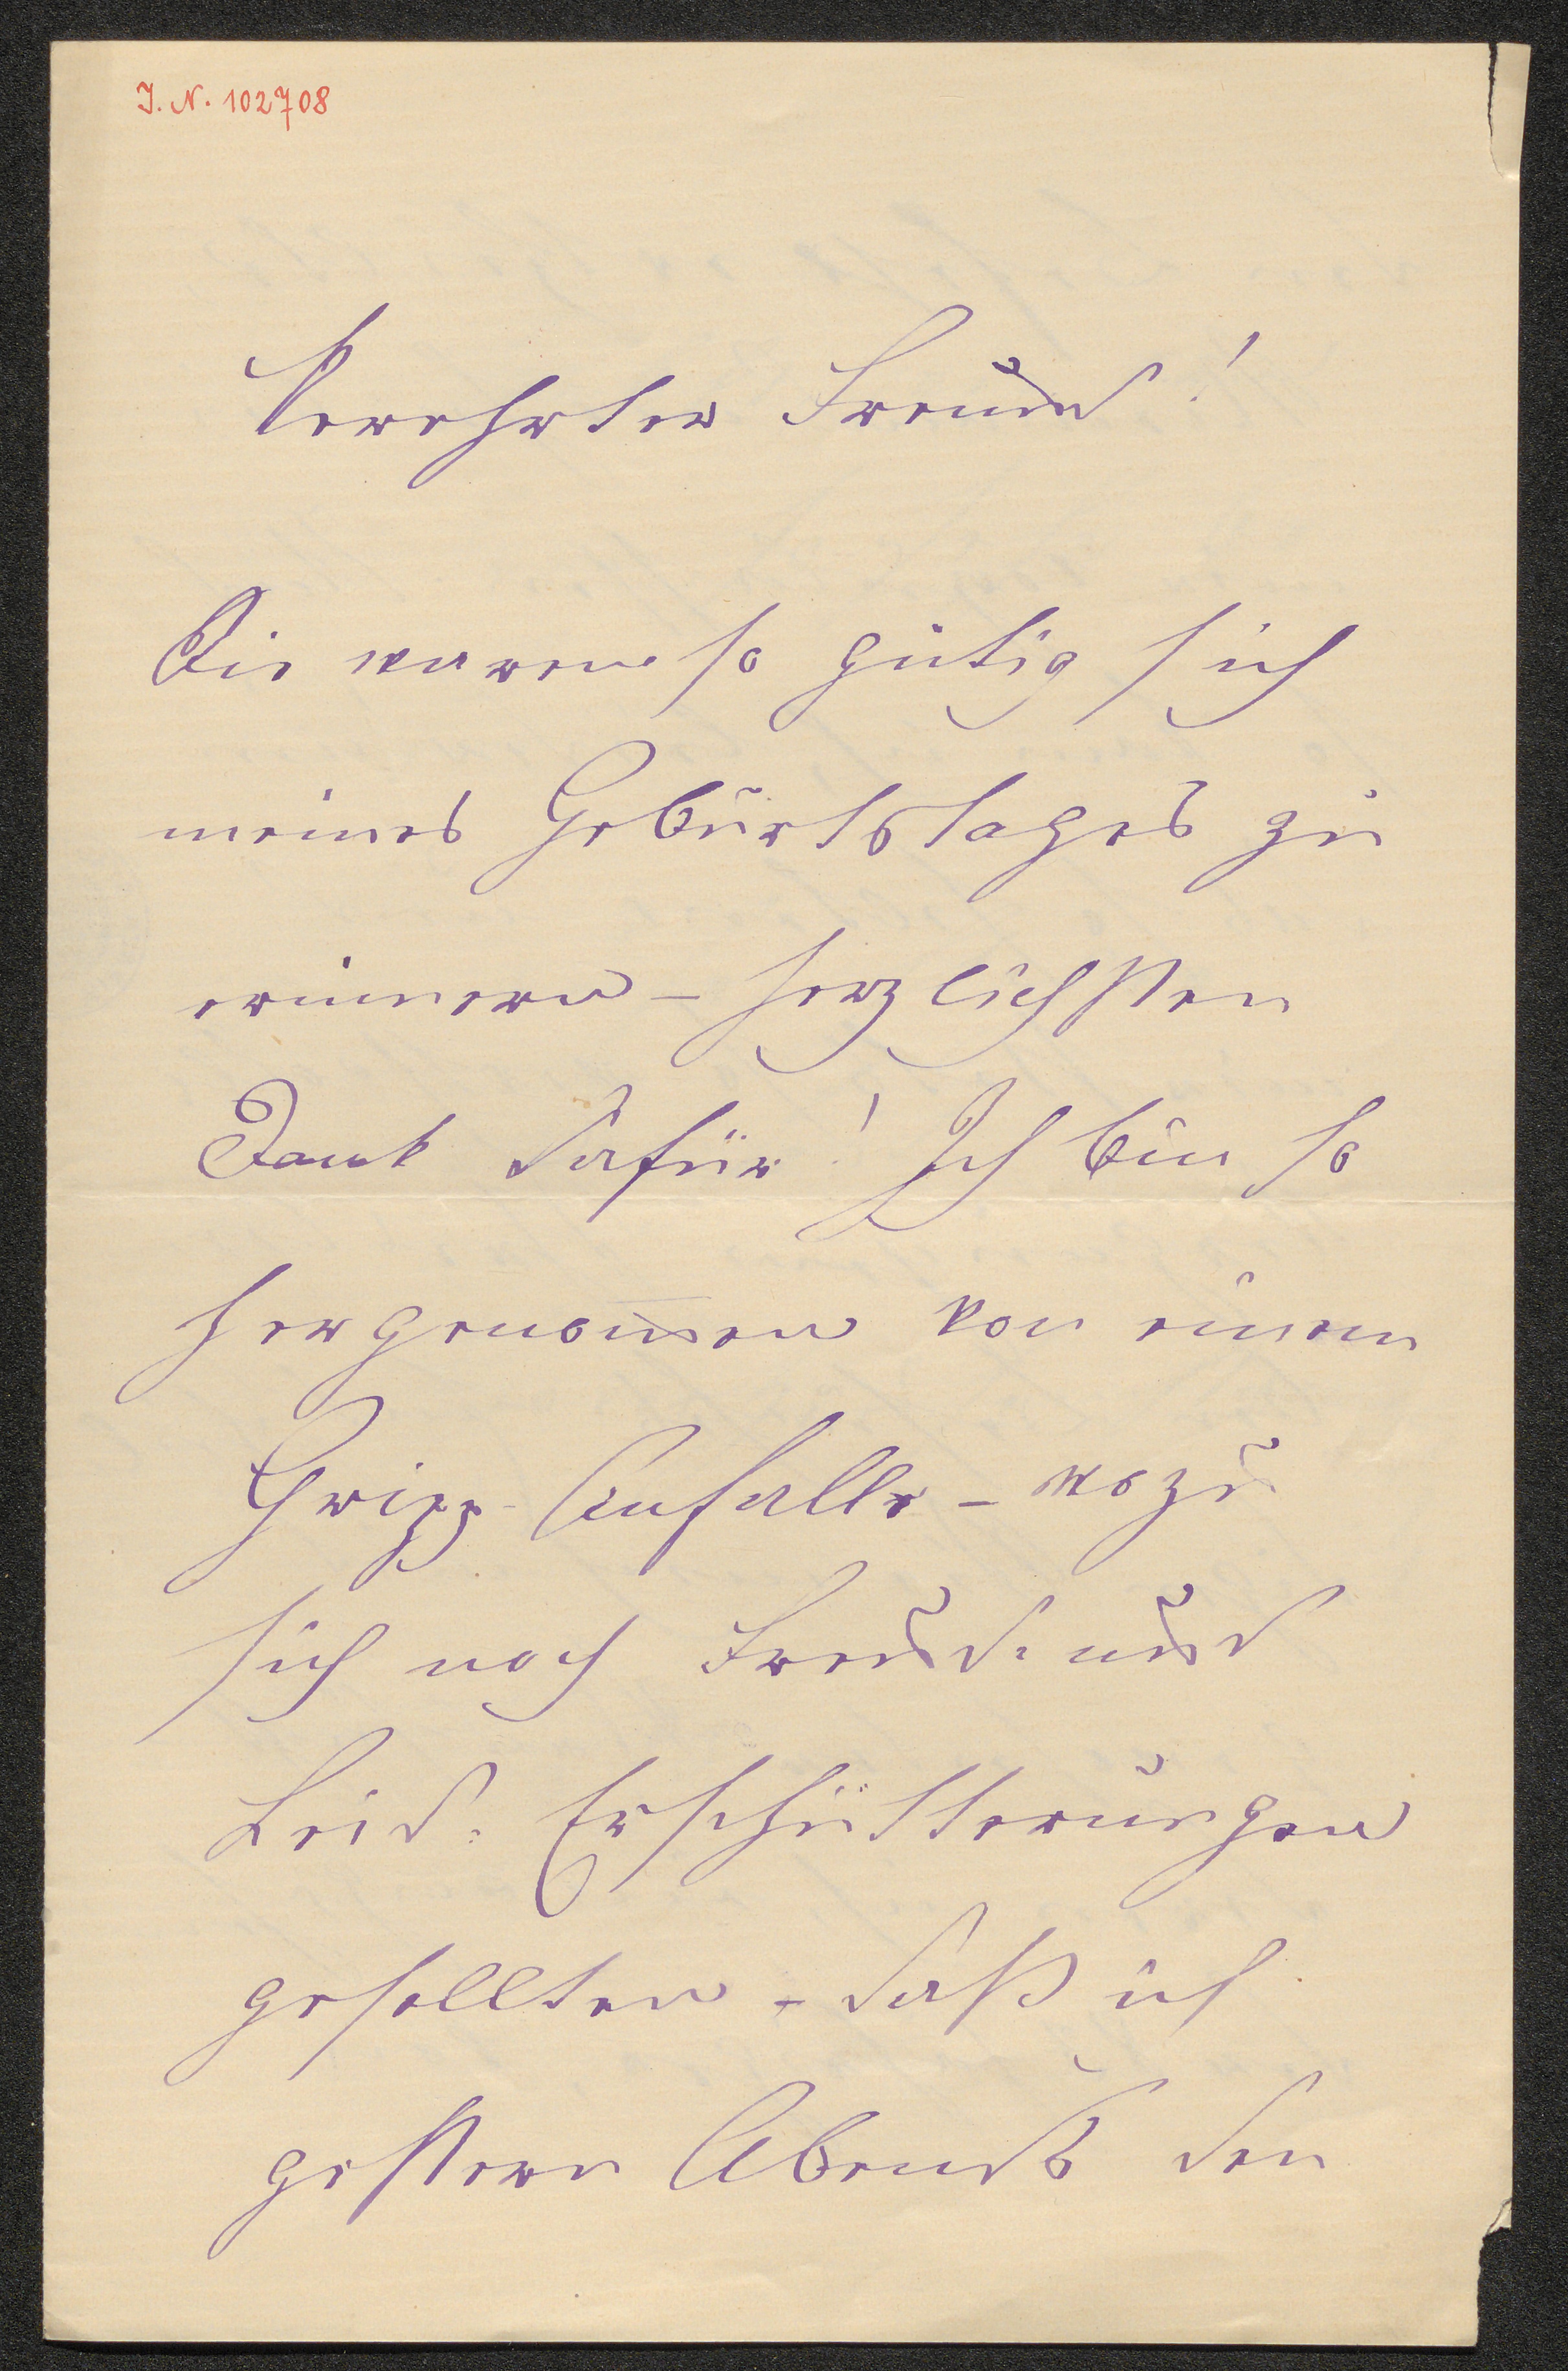 J. N. 102708
Verehrter Freund!
Sie waren so gütig sich
meines Geburtstages zu
erinnern – herzlichsten
Dank dafür! Ich bin so
hergenom̅en von einem
Gripp-Anfalle – wozu
sich noch Freud- und
Leid-Erschütterungen
gesellten – daß ich
gestern Abends den